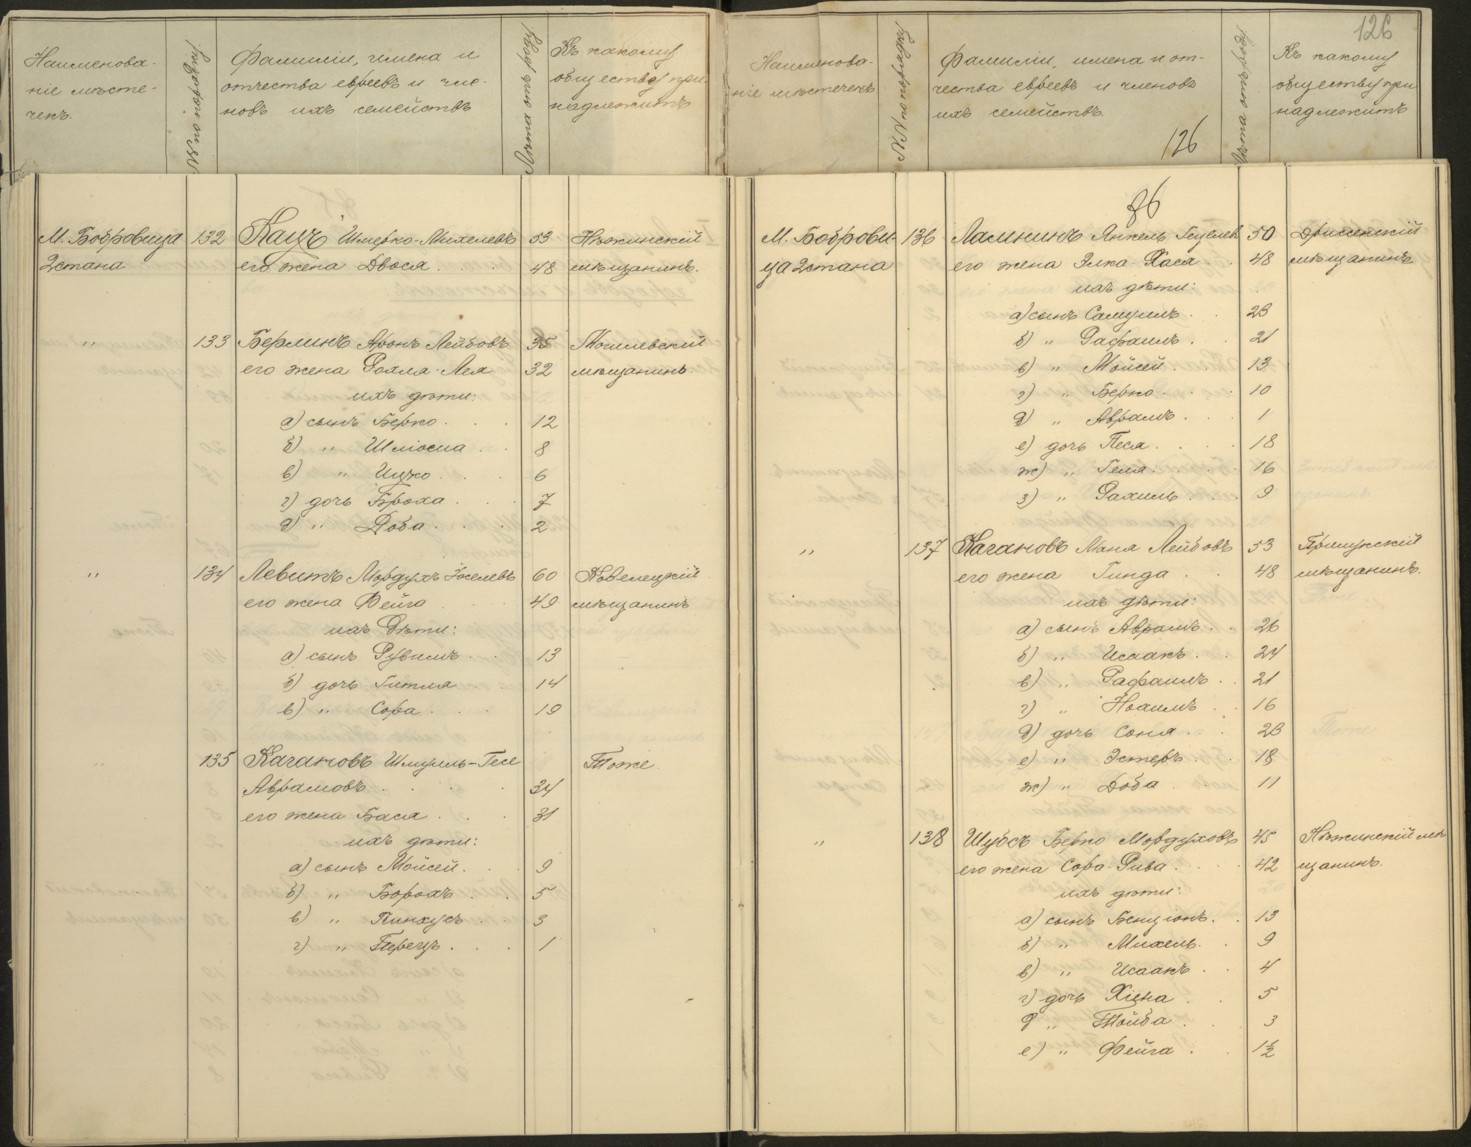 Наименова-
ніе мѣсте-
чекъ.
№№ по порядку
Фамиліи, имена и
отчества евреевъ и чле-
новъ ихъ семействъ
Лѣта отъ роду
Къ какому
обществу при-
надлежитъ
М. Бобровица 132 Кацъ Шмерко-Михелевъ 53 Нѣжинскій
2 стана его жена Двося . . 48 мѣщанинъ.
" 133 Берлинъ Аронъ Лейбовъ 35 Могилевскій
его жена Рохля-Лея 32 мѣщанинъ
ихъ дѣти:
а) сынъ Берко . . . 12
б) " Шліома . . 8
в) " Ицко . . . 6
г) дочь Броха . . . 7
д) " Доба . . . 2
" 134 Левитъ Мордухъ Іоселевъ 60 Козелецкій
его жена Фейга 49 мѣщанинъ
ихъ дѣти:
а) сынъ Рувимъ . . 13
б) дочь Гитля 14
в) " Сора . . . 19
" 135 Кагановъ Шмуиль-Гесе Тоже
Абрамовъ . . . . 34
его жена Бася . . . 31
ихъ дѣти:
а) сынъ Мойсей . . 9
б) " Борохъ . . 5
в) " Пинхусъ . . 3
г) " Перецъ . . . 1
126
Наименова-
ніе мѣстечекъ
№№ по порядку
Фамиліи, имена и от-
чества евреевъ и членовъ
ихъ семействъ.
126
Лѣта отъ роду
Къ какому
обществу при
надлежитъ
86
М. Боброви- 136 Ламнинъ Янкель 50 Дрисенскій
ца 2 стана его жена Элка Хася . . 48 мѣщанинъ
ихъ дѣти:
а) сынъ Самуилъ . . 23
б) " Рафаилъ . . 21
в) " Мойсей . . 13
г) " Берко . . . 10
д) " Абрамъ . . . 1
е) дочь Песя . . . 18
ж) " Геля . . . 16
з) " Рахиль . . . 9
" 137 Кагановъ Маня Лейбовъ 53 Прилукскій
его жена Гинда . . 48 мѣщанинъ.
ихъ дѣти:
а) сынъ Абрамъ . . 26
б) " Исаакъ . . 24
в) " Рафаилъ . . 21
г) " Нохимъ . . 16
д) дочь Соня . . 23
е) " Эстеръ . . 18
ж) " Доба . . 11
" 138 Шубъ Берко Мордуховъ 45 Нѣжинскій мѣ
его жена Сора-Рива . . 42 щанинъ.
ихъ дѣти:
а) сынъ Бенціонъ . . 13
б) " Михель . . 9
в) " Исаакъ . . 4
г) дочь Хана . . 5
д) " Тойба . . 3
е) " Фейга . 1½